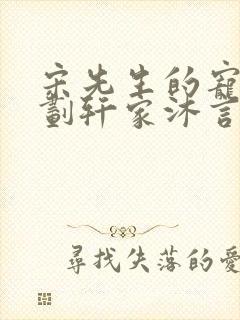 宋先生的寵
劃轩家沐言
尋找失落的愛